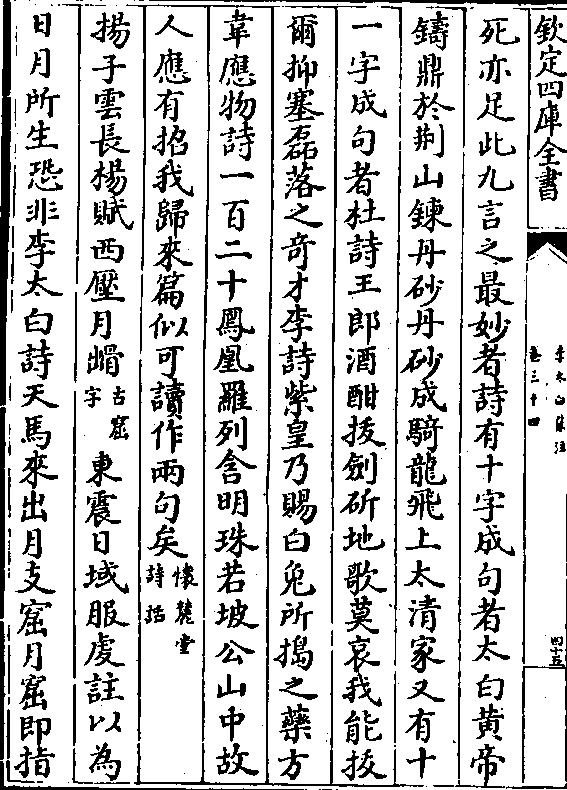 欽定四庫全書
李太白集注
卷三十四
四十五
死亦足此九言之最妙者詩有十字成句者太白黃帝
鑄鼎於荆山鍊丹砂丹砂成騎龍飛上太清家又有十
一字成句者杜詩王郎酒酣拔劍斫地歌莫哀我能拔
爾抑塞磊落之奇才李詩紫皇乃賜白兔所搗之藥方
韋應物詩一百二十鳳凰羅列含明珠若坡公山中故
人應有招我歸來篇似可讀作兩句矣懷麓堂詩話
揚子雲長楊賦西壓月𡿺古窟字東震日域服虔註以為
日月所生恐非李太白詩天馬來出月支窟月窟即指